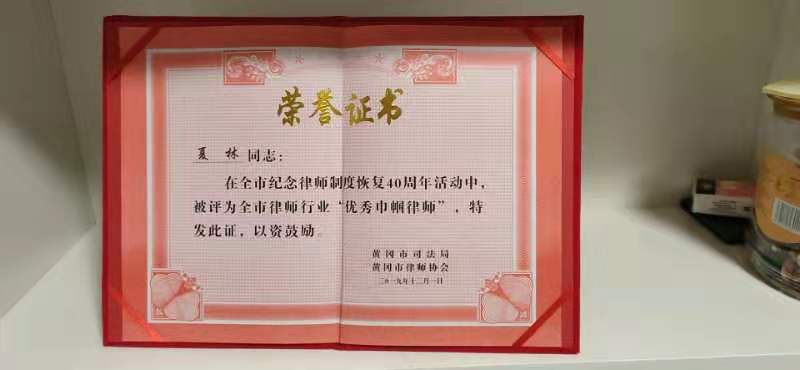 荣誉证书
夏林 同志：
在全市纪念律师制度恢复40周年活动中，
被评为全市律师行业“优秀巾帼律师”，特
发此证，以资鼓励。
黄冈市司法局
黄冈市律师协会
二0一九年十二月一日